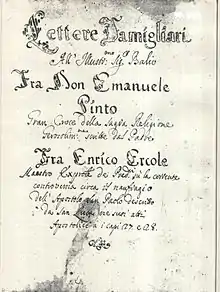 Lettere Famigliari
All' Illustr.mo Sig.r Balio
Fra Don Emanuele
Pinto
Gran Croce della Sagra Religione
Gerosolim.na scritte dal Padre
Fra Enrico Ercole
Maestro Exprov.le de Pred.ri su la corrente
controversia circa il naufragio
dell' Apostolo San Paolo descritto
da San Luca ne suoi atti
Apostolici a i capi 27 e 28.